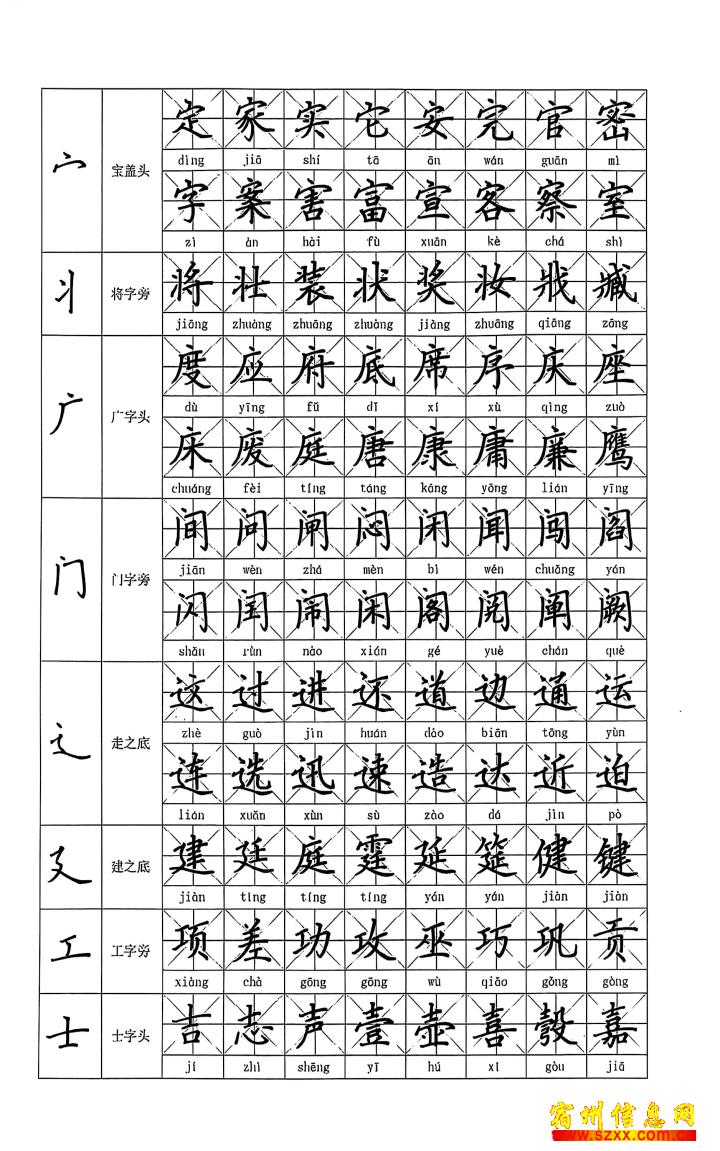 宀 宝盖头
定 家 实 它 安 完 官 密
dìng jiā shí tā ān wán guān mì
字 案 害 富 宣 客 察 室
zì àn hài fù xuān kè chá shì
丬 将字旁
将 壮 装 状 奖 妆 戕 臧
jiāng zhuàng zhuāng zhuàng jiàng zhuāng qiāng zāng
广 广字头
度 应 府 底 席 序 庆 座
dù yīng fǔ dǐ xí xù qìng zuò
床 废 庭 唐 康 庸 廉 鹰
chuáng fèi tíng táng kāng yōng lián yīng
门 门字旁
间 问 闸 闷 闭 闻 闯 阎
jiān wèn zhá mèn bì wén chuǎng yán
闪 闰 闹 闲 阁 阅 阐 阙
shǎn rùn nào xián gé yuè chǎn què
辶 走之底
这 过 进 还 道 边 通 运
zhè guò jìn huán dào biān tōng yùn
连 选 迅 速 造 达 近 迫
lián xuǎn xùn sù zào dá jìn pò
廴 建之底
建 廷 庭 霆 延 筵 健 键
jiàn tíng tíng tíng yán yán jiàn jiàn
工 工字旁
项 差 功 攻 巫 巧 巩 贡
xiàng chà gōng gōng wù qiǎo gǒng gòng
士 士字头
吉 志 声 壹 壶 喜 彀 嘉
jí zhì shēng yī hú xǐ gòu jiā
宿州信息网
www.szxx.com.cn